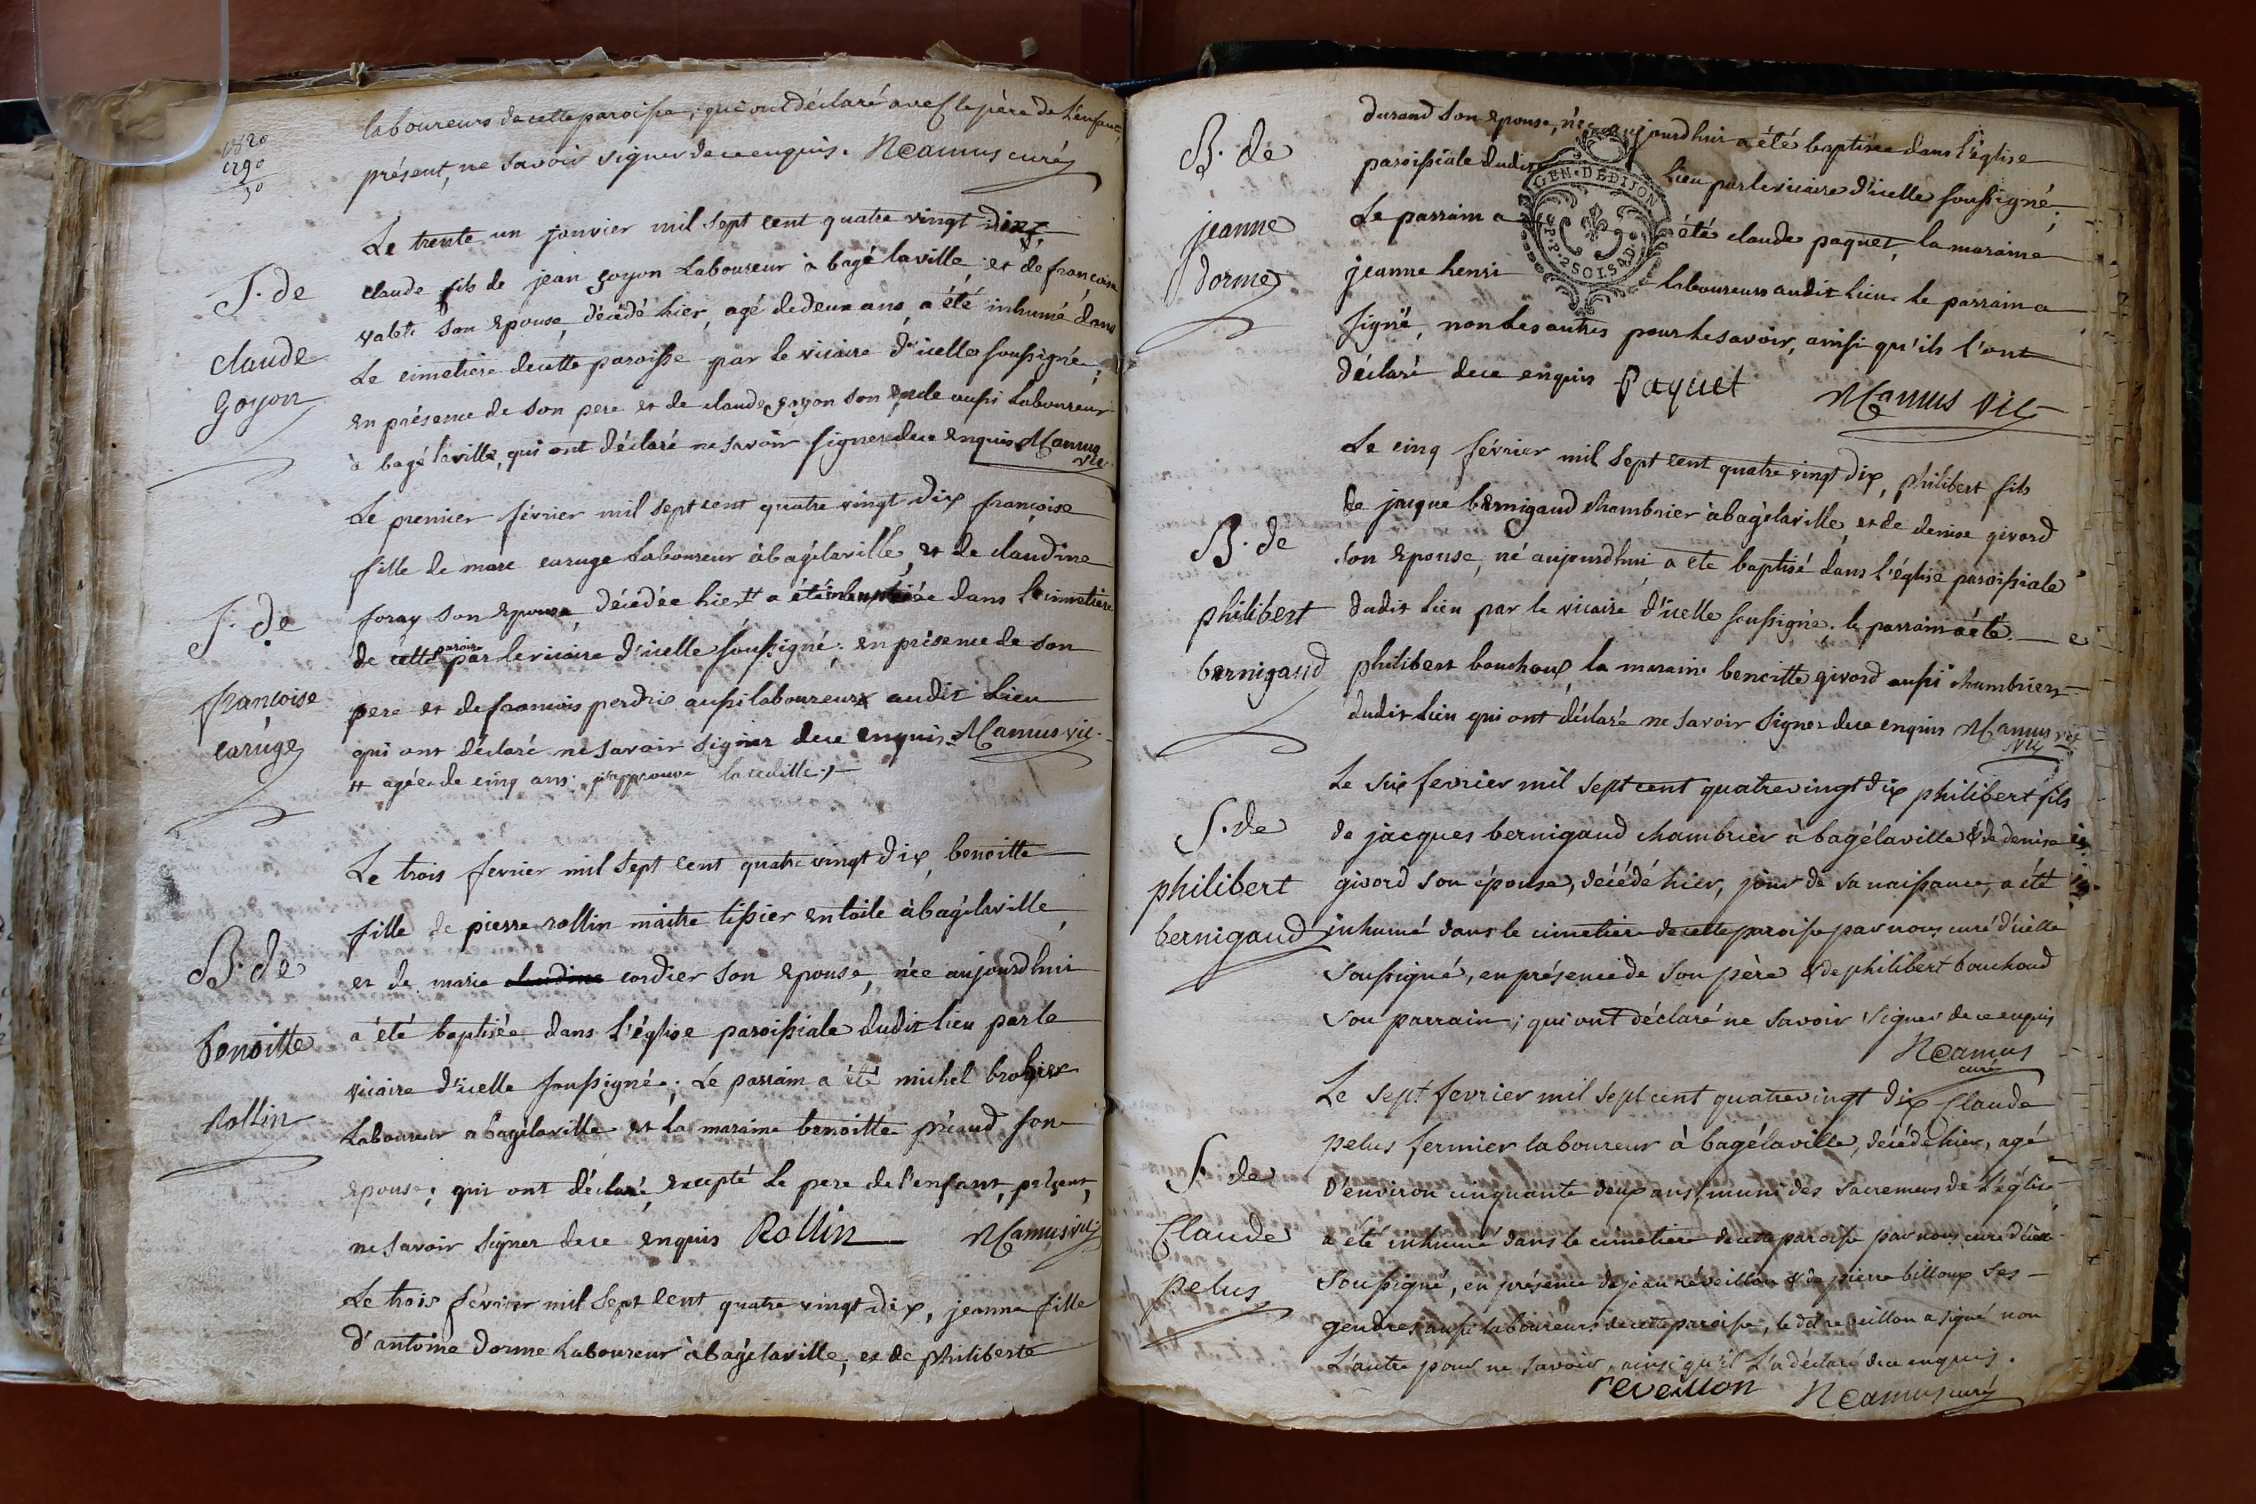 1820
1790
30
laboureurs de cette paroisse, qui ont déclaré avec le père de l'enfant
présent, ne savoir signer de ce enquis. N Camus curé
S. de
claude
Goyon
Le trente un janvier mil sept cent quatre vingt dix,
claude fils de jean goyon Laboureur à bagé laville et de francoise
son epouse, décédé hier, agé de deux ans, a été inhumé dans
Le cimetiere de cette paroisse par le vicaire d'icelle soussigné,
en présence de son pere et de claude goyon son oncle aussi Laboureur
à bagé laville, qui ont déclaré ne savoir signer de ce enquis N Camus
vic
S. de
françoise
caruge
Le premier février mil sept cent quatre vingt dix françoise
fille de marc caruge Laboureur à bagélaville, et de claudine
foray son epouse, décédée hier # a été inhumée dans le cimetiere
de cette parois par le vicaire d'icelle soussigné. en présence de son
pere et de francois perdrix aussi laboureurs audit Lieu
qui ont déclaré ne savoir signer de ce enquis. N Camus vic.
# agée de cinq ans. j'approuve
B. de
Benoitte
Rollin
Le trois fevrier mil sept cent quatre vingt dix, benoitte
fille de pierre rollin maitre tissier en toile à bagélaville,
et de marie cordier son epouse, née aujourdhui
a été baptisée dans l'église paroissiale dudit lieu par le
vicaire d'icelle soussigné. Le parrain a été michel brohier
Laboureur a bagélaville et la maraine benoitte préaud son
epouse; qui ont déclaré, excepté Le pere de l'enfant, présent,
ne savoir signer de ce enquis Rollin N Camus vic
Le trois février mil sept cent quatre vingt dix, jeanne fille
d'antoine dorme Laboureur à bagélaville, et de philiberte
B. de
jeanne
dorme
durand son epouse, née aujourdhui a été baptisée dans l'église
paroissiale dudit Lieu par le vicaire d'icelle soussigné.
GEN. DE DIJON
P.P. 2 SOLS 4 D.
Le parrain a été claude paquet, la maraine
jeanne henri laboureurs audit Lieu. Le parrain a
signé, non les autres pour ne savoir, ainsi qu'ils l'ont
déclaré de ce enquis Paquet N Camus vic
B. de
philibert
bernigaud
Le cinq février mil sept cent quatre vingt dix, philibert fils
de jacque bernigaud chambrier à bagélaville, et de denise givord
son epouse, né aujourdhui a ete baptisé dans l'église paroissiale
dudit Lieu par le vicaire d'icelle soussigné. le parrain a été
philibert bouchoux, la maraine benoitte givord aussi chambriers
dudit Lieu qui ont déclaré ne savoir signer de ce enquis N Camus vic
vic
S. de
philibert
bernigaud
Le six fevrier mil sept cent quatre vingt dix philibert fils
de jacques bernigaud chambrier à bagélaville & de denise
givord son épouse, décédé hier, jour de sa naissance, a été
inhumé dans le cimetiere de cette paroisse par nous curé d'icelle
soussigné, en présence de son père & de philibert bouchoud
son parrain; qui ont déclaré ne savoir signer de ce enquis
N Camus
curé
S. de
Claude
pelus
Le sept fevrier mil sept cent quatre vingt dix Claude
pelus fermier laboureur à bagélaville, décédé hier, agé
d'environ cinquante deux ans, muni des sacremens de L'église
a été inhumé dans le cimetiere de cette paroisse par nous curé d'icelle
soussigné, en présence de jean réveillon & de pierre billoux ses
gendres aussi laboureurs de cette paroisse, le dit reveillon a signé non
L'autre pour ne savoir, ainsi qu'il L'a déclaré de ce enquis.
reveillon N Camus curé